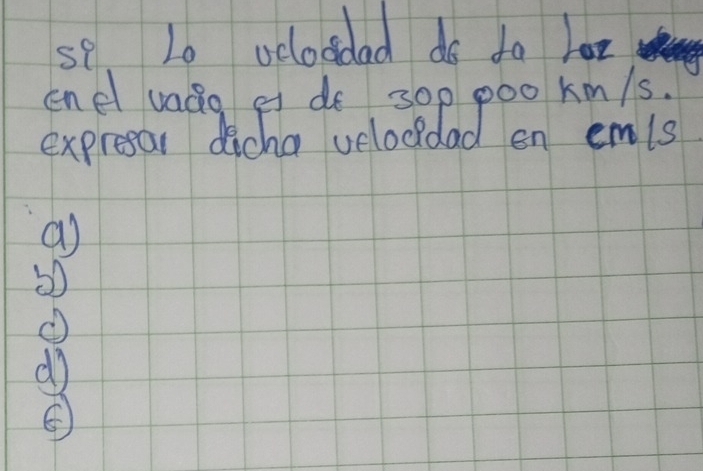 si Lo velocidad de la Luz
en el vacio es de 300 000 Km/s.
expresar dicha velocidad en cm/s
a)
b)
c)
d)
e)